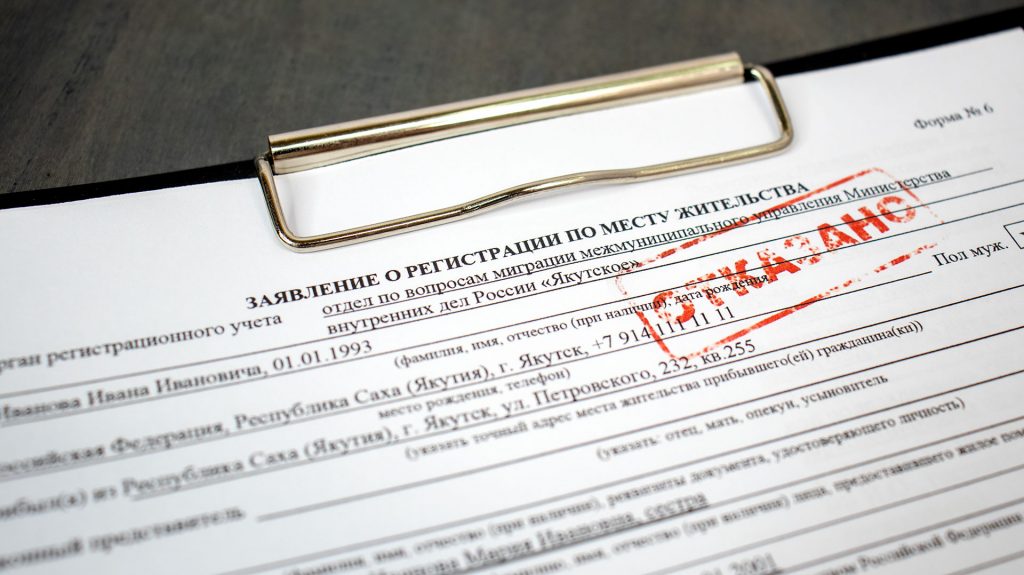 Форма № 6
ЗАЯВЛЕНИЕ О РЕГИСТРАЦИИ ПО МЕСТУ ЖИТЕЛЬСТВА
ОТКАЗАНО
рган регистрационного учета отдел по вопросам миграции межмуниципального управления Министерства
внутренних дел России «Якутское»
(фамилия, имя, отчество (при наличии), дата рождения) Пол муж.
Иванова Ивана Ивановича, 01.01.1993
оссийская Федерация, Республика Саха (Якутия), г. Якутск, +7 914 111 11 11
место рождения, телефон)
ибыл(а) из Республика Саха (Якутия), г. Якутск, ул. Петровского, 232, кв.255
(указать точный адрес места жительства прибывшего(ей) гражданина(ки))
онный представитель
(указать: отец, мать, опекун, усыновитель
имя, отчество (при наличии), реквизиты документа, удостоверяющего личность)
Мария Ивановна, сестра
имя, отчество (при наличии) лица, предоставившего жилое
2001
Российской Федерации